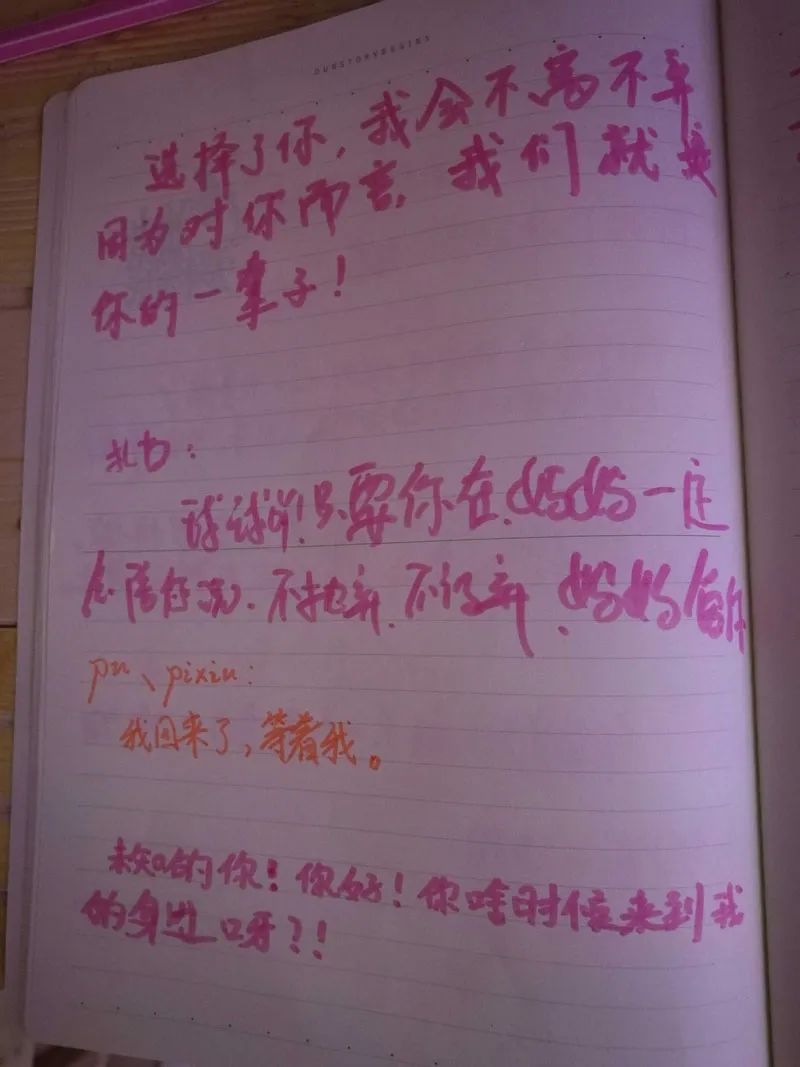 OURSTORYBEGINS
选择了你,我会不离不弃
因为对你而言,我们就是
你的一辈子!
扎力:
球球吖!只要你在、妈妈一定
不抛弃、不放弃、妈妈
pu、pixiu:
我回来了,等着我。
未知的你!你好!你啥时候来到我
的身边呀?!